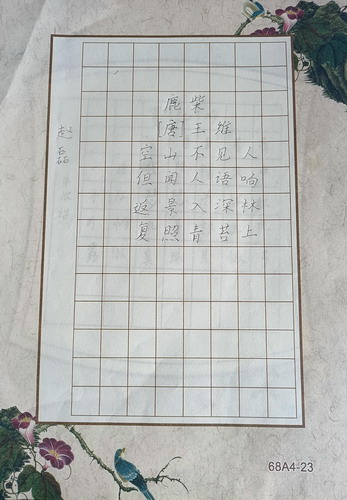 鹿柴
[唐]王维
空山不见人
但闻人语响
返景入深林
复照青苔上
赵磊
68A4-23